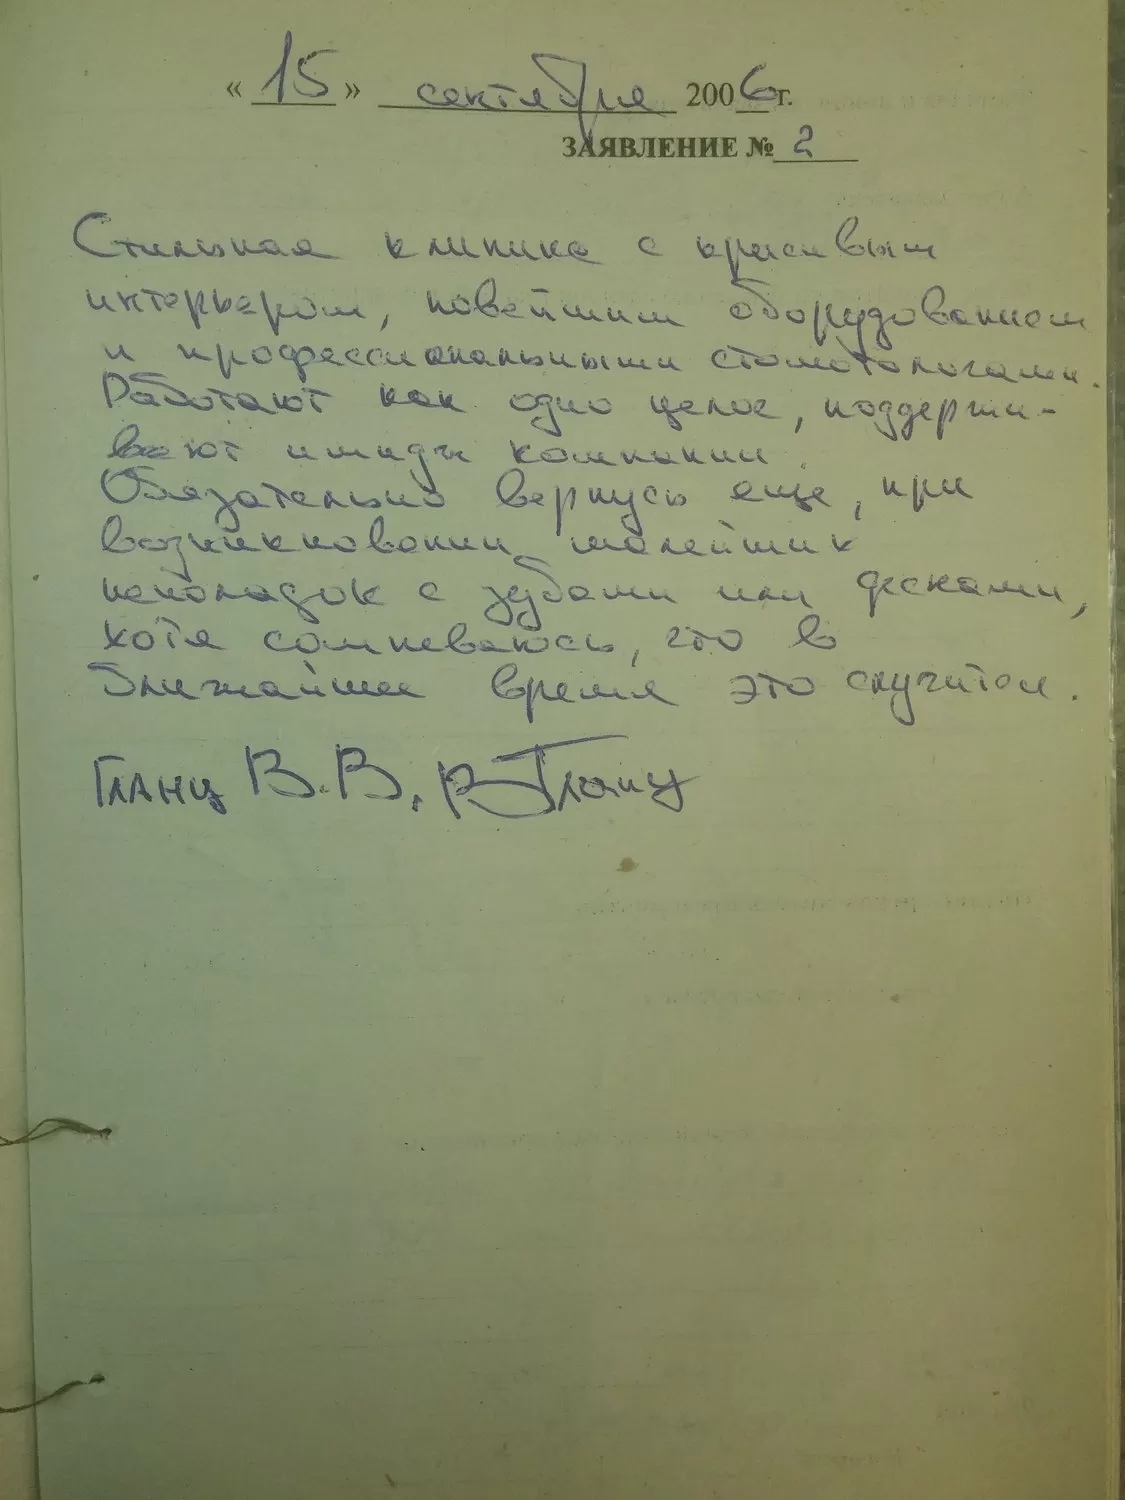 « 15 » сентября 2006 г.
ЗАЯВЛЕНИЕ № 2
Стильная клиника с красивым
интерьером, новейшим оборудованием
и профессиональными стоматологами.
Работают как одно целое, поддержи-
вают имидж компании.
Обязательно вернусь еще, при
возникновении малейших
неполадок с зубами или деснами,
хотя сомневаюсь, что в
ближайшее время это случится.
Гланц В.В. ВГланц